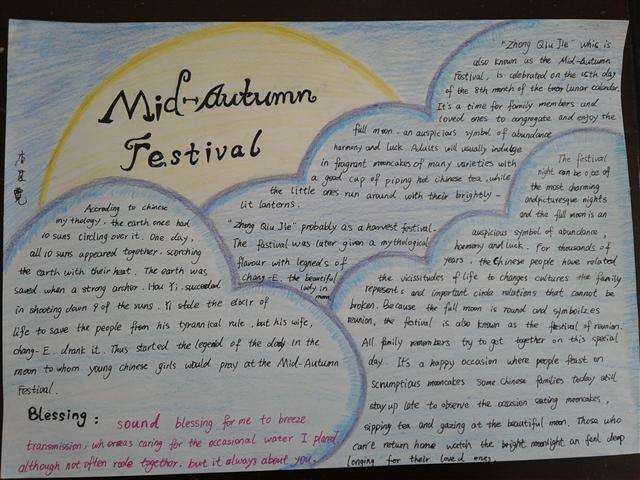 Mid-Autumn
Festival
"Zhong Qiu Jie" whis is
also known as the Mid-Autumn
Festival, is celebrated on the 15th day
of the 8th month of the lunar calendar.
It's a time for family members and
loved ones to congregate and enjoy the
full moon - an auspicious symbol of abundance
harmony and luck. Adults will usually indulge
in fragrant mooncakes of many varieties with
a good cup of piping hot chinese tea, while
the little ones run around with their brightly-
lit lanterns.
"Zhong Qiu Jie" probably as a harvest festival.
The fastival was later given a mythological
flavour with legneds of
chang-E. the beautiful
lady in
moon
According to chinese
mythology, the earth once had
10 suns circling over it. One day,
all 10 suns appeared together, scorching
the earth with their heat. The earth was
saved when a strong archer. Hou Yi. succeeded
in shooting down 9 of the suns. Yi stole the elixir of
life to save the people from his tyrannical rule, but his wife,
chang-E. drank it. Thus started the legend of the lady in the
moon to whom young chinese girls would pray at the Mid-Autumn
Festival.
The festival
night can be one of
the most charming
and picturesque nights
and the full moon is an
auspicious symbol of abundance,
harmony and luck. For thousands of
years, the Chinese people have related
the vicissitudes of life to changes cultures the family
represents and important circle relations that cannot be
broken. Because the full moon is round and symbolizes
reunion, the festival is also known as the festival of reunion.
All family members try to get together on this special
day. It's a happy occasion where people feast on
scrumptious mooncakes Some Chinese families today still
stay up late to observe the occasion eating mooncakes,
sipping tea and gazing at the beautiful moon. Those who
can't return home watch the bright moonlight an feel deep
longing for their loved ones.
Blessing: sound blessing for me to breeze
transmission, whereas caring for the occasional water I planed
although not often rode together, but it always about you.